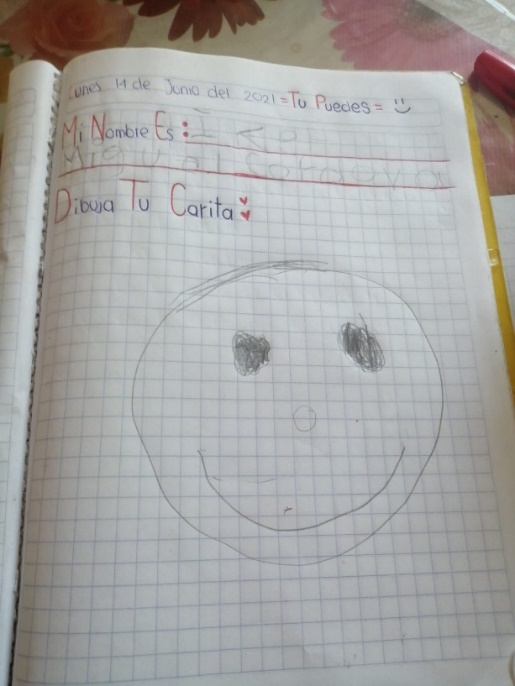 Lunes 14 de Junio del 2021 = Tu Puedes =
Mi Nombre Es:
Dibuja Tu Carita: